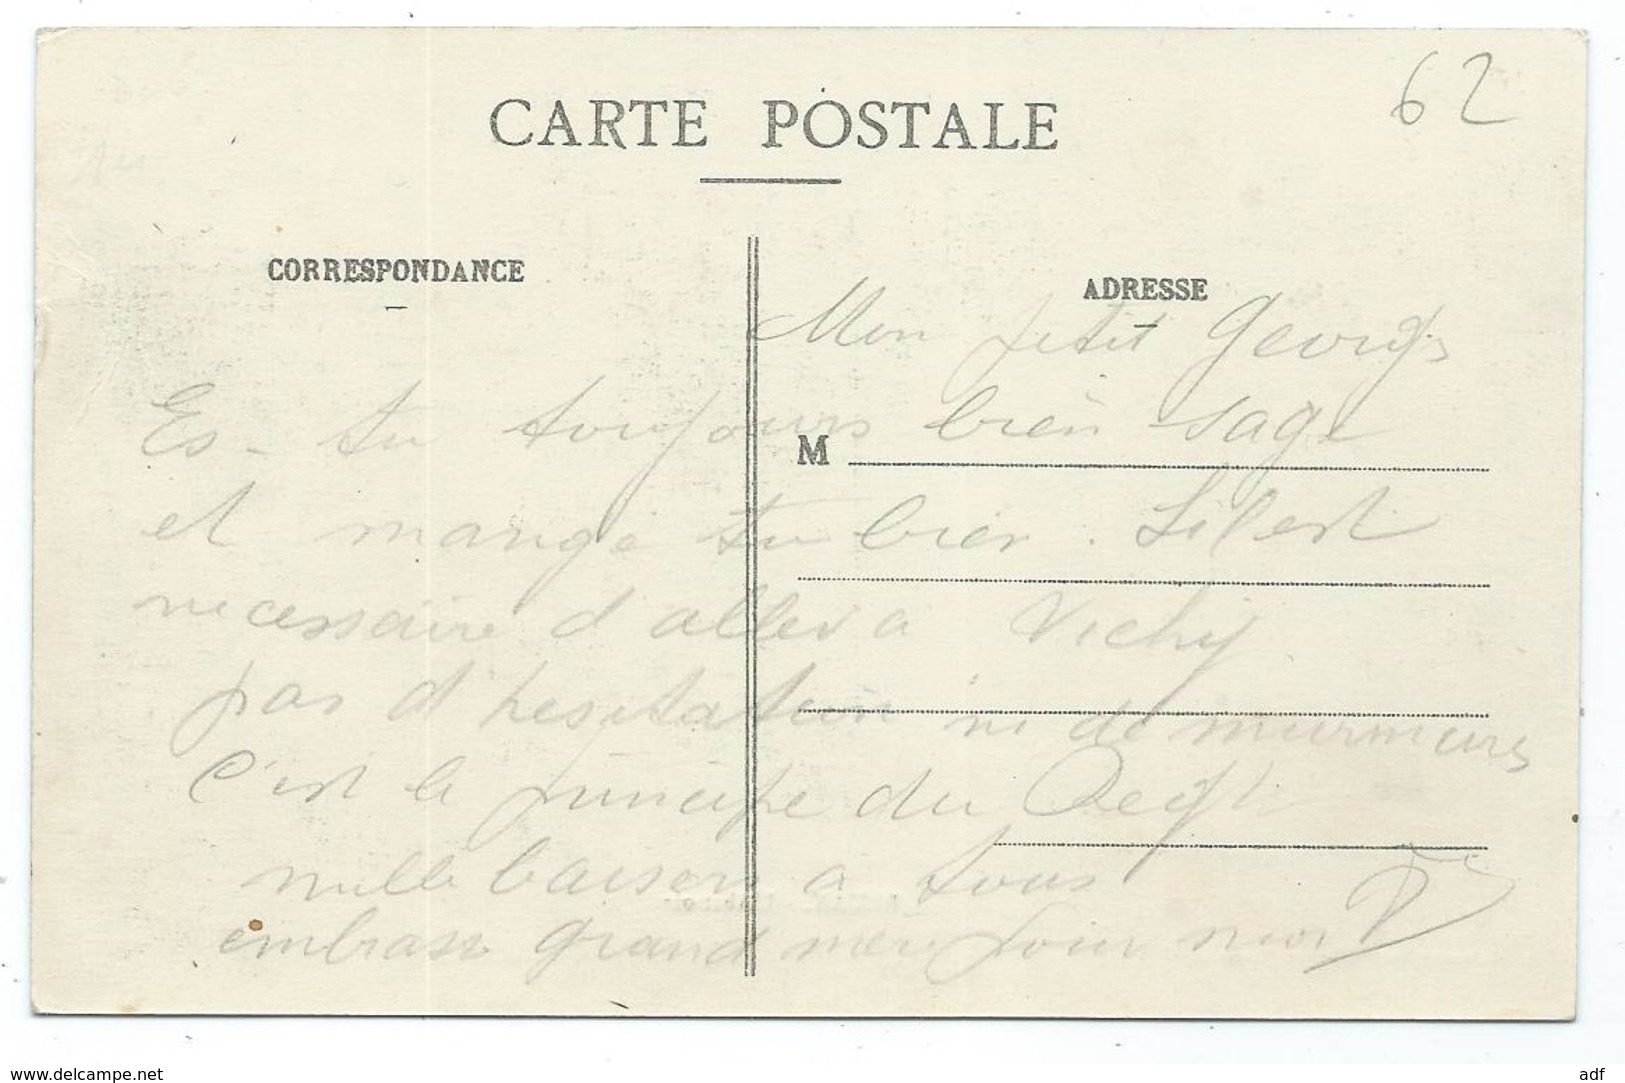 62
CARTE POSTALE
CORRESPONDANCE
ADRESSE
Mon petit Georges
Es-tu toujours bien sage
M
et mange tu bien. Sil est
necessaire d aller a Vichy
pas d hesitation ni de murmures
c'est le principe du
mille baisers a tous
embrasse grand mere pour moi
www.delcampe.net
adf